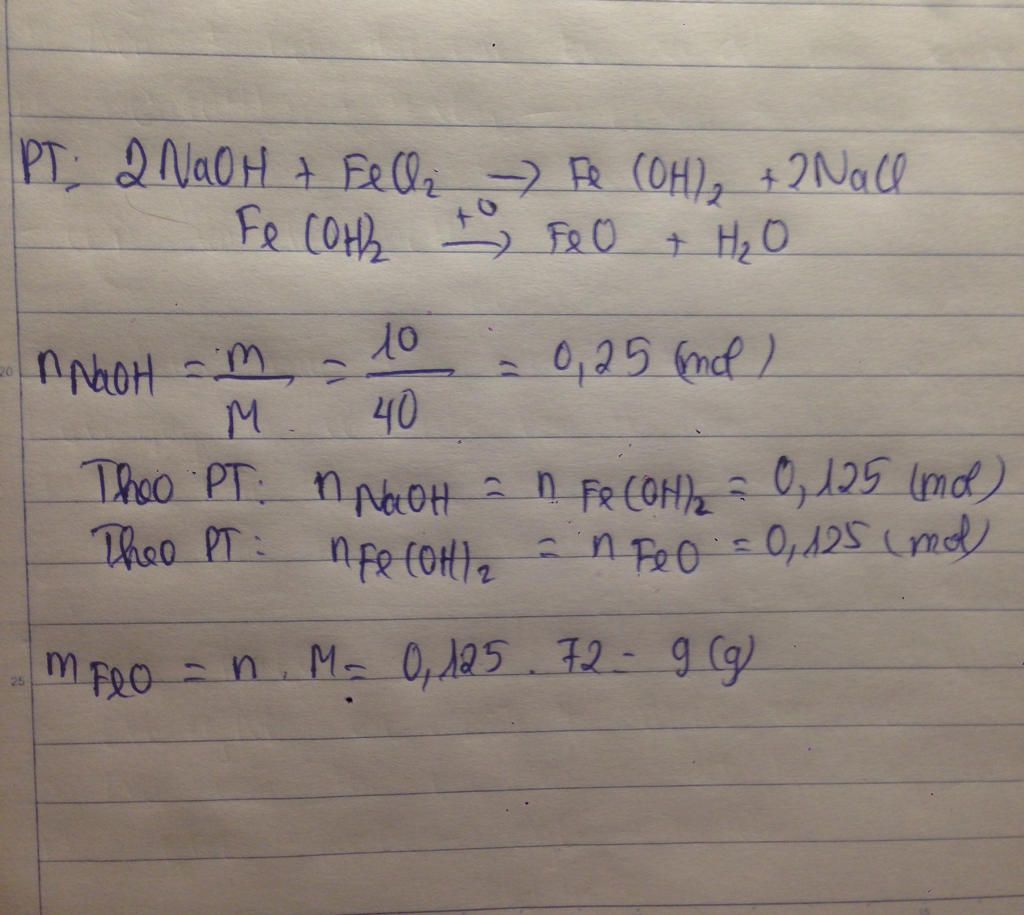 20
25
PT: 2NaOH + FeCl₂ → Fe(OH)₂ + 2NaCl
Fe(OH)₂ →(t⁰) FeO + H₂O
n NaOH = m/M = 10/40 = 0,25 (mol)
Theo PT: n NaOH = n Fe(OH)₂ = 0,125 (mol)
Theo PT: n Fe(OH)₂ = n FeO = 0,125 (mol)
m FeO = n . M = 0,125 . 72 = 9 (g)